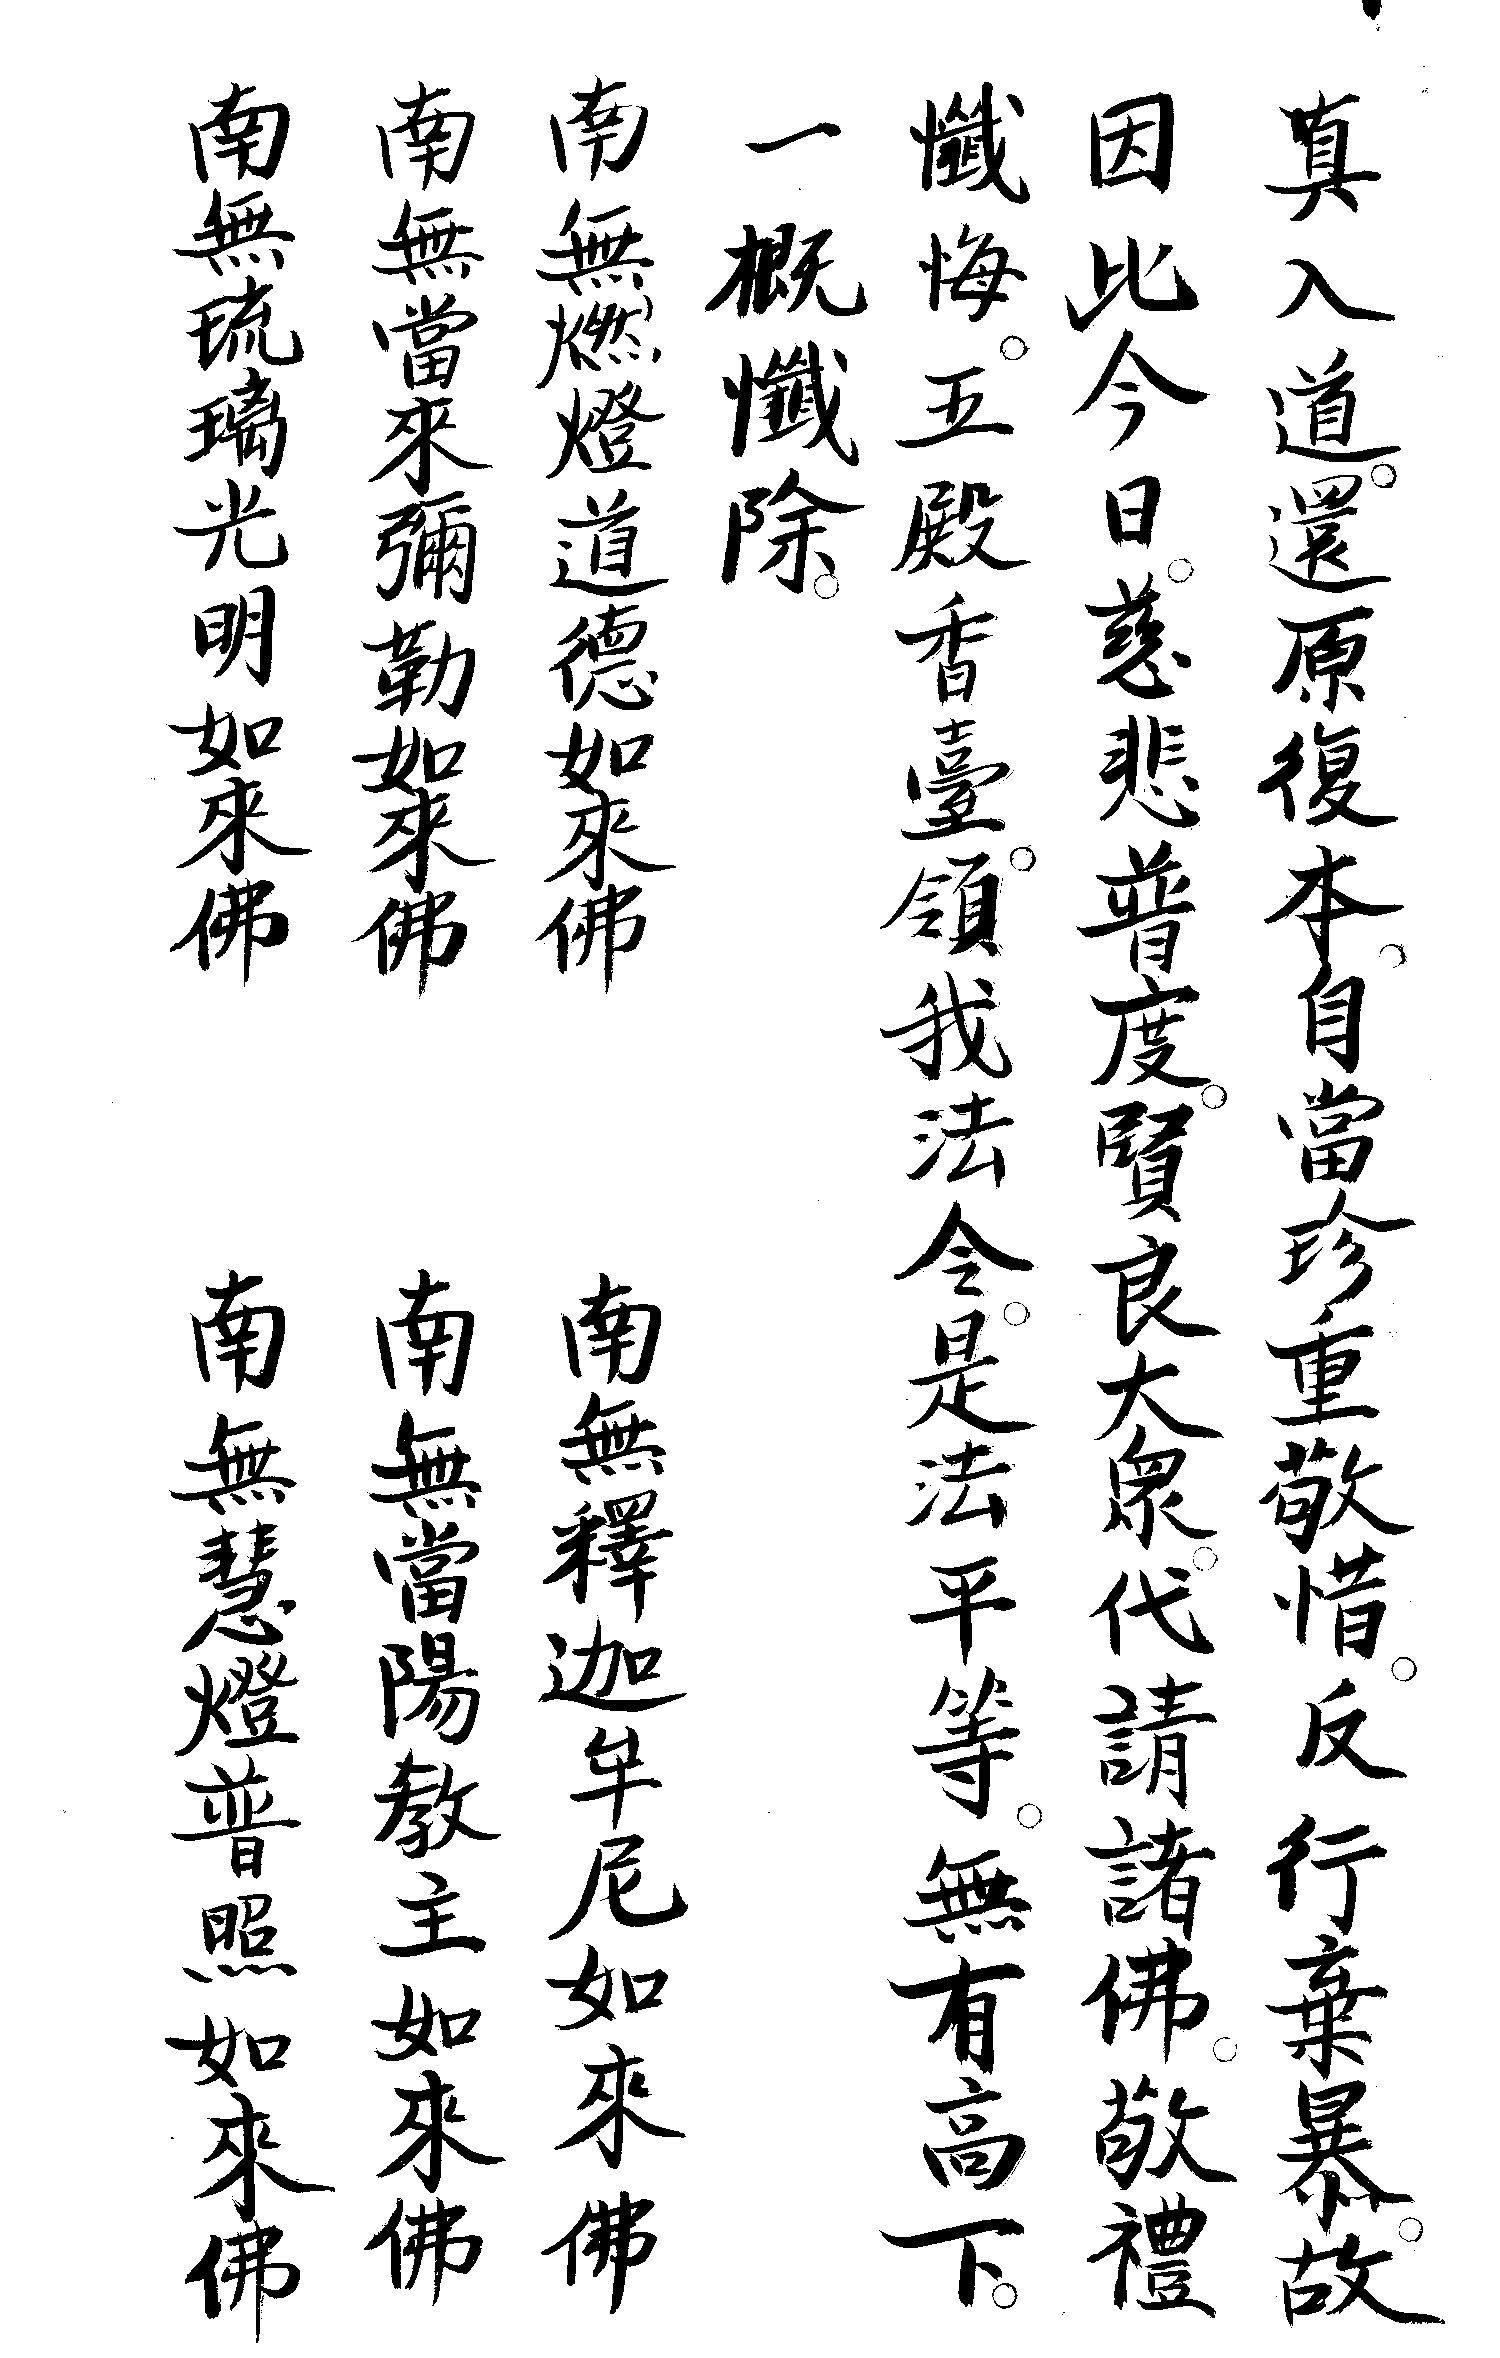 真入道。還原復本。自當珍重敬惜。反行棄暴。故
因比今日。慈悲普度。賢良大眾。代請諸佛。敬禮
懺悔。五殿香臺。領我法令。是法平等。無有高下。
一概懺除。
南無燃燈道德如來佛　南無釋迦牟尼如來佛
南無當來彌勒如來佛　南無當陽教主如來佛
南無琉璃光明如來佛　南無慧燈普照如來佛